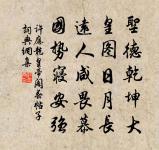 聖德乾坤大
皇圖日月長
遠人咸畏慕
國勢寖安強
許應龍皇帝閣春帖子
詞典網集